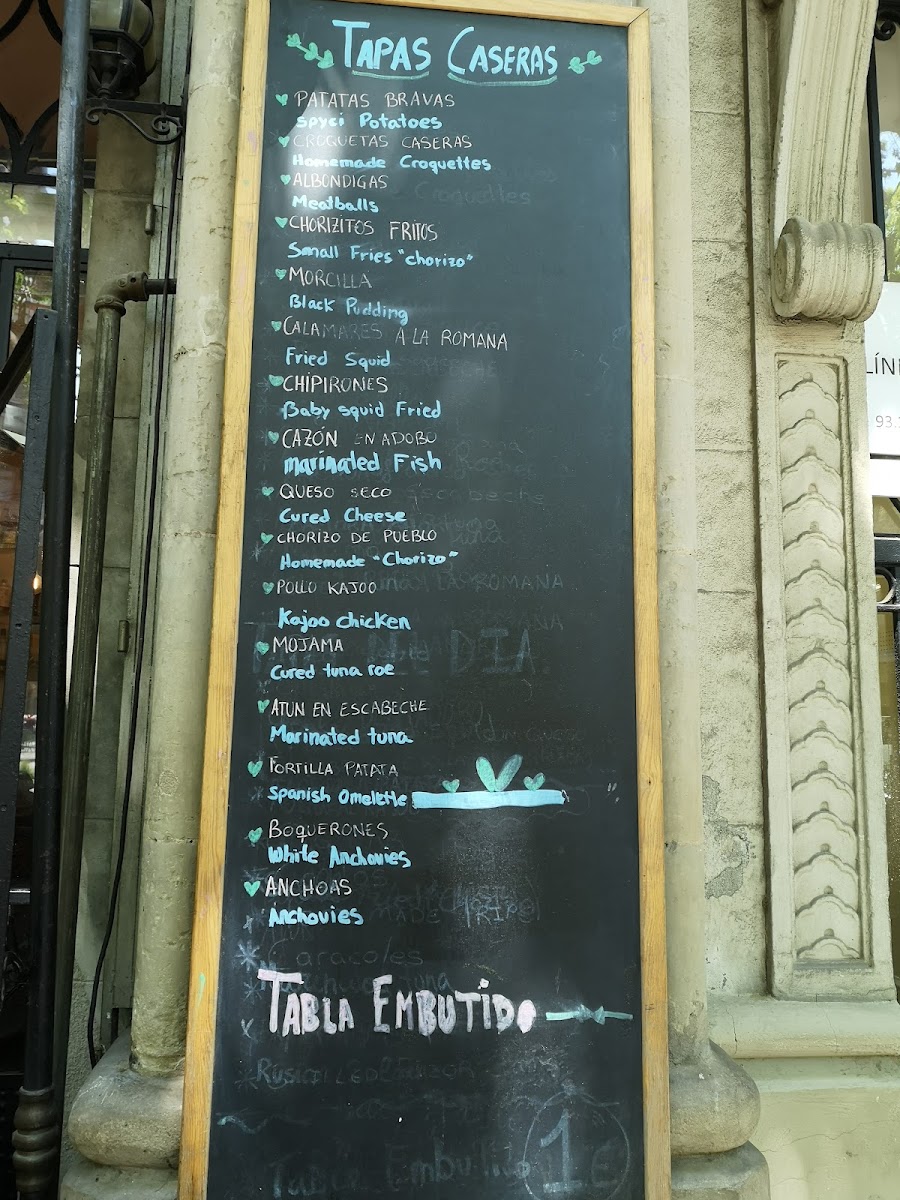 TAPAS CASERAS
PATATAS BRAVAS
spyci Potatoes
CROQUETAS CASERAS
Homemade Croquettes
ALBONDIGAS
Meatballs
CHORIZITOS FRITOS
Small Fries "chorizo"
MORCILLA
Black Pudding
CALAMARES A LA ROMANA
Fried Squid
CHIPIRONES
Baby squid Fried
CAZÓN EN ADOBO
marinated Fish
QUESO SECO
Cured Cheese
CHORIZO DE PUEBLO
Homemade "Chorizo"
POLLO KAJOO
Kajoo chicken
MOJAMA
Cured tuna roe
ATUN EN ESCABECHE
Marinated tuna
TORTILLA PATATA
Spanish Omelette
BOQUERONES
White Anchovies
ANCHOAS
Anchovies
Caracoles
TABLA EMBUTIDO
Tabla Embutido
1 €
LÍN
93.